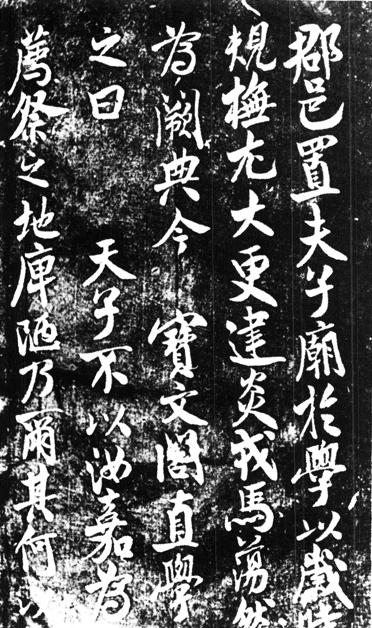 郡邑置夫子廟於學以歲時
規橅尤大更建炎戎馬蕩然
為闕典今 寶文閣直學
之曰 天子不以汝嘉為
薦祭之地庳陋乃爾其何